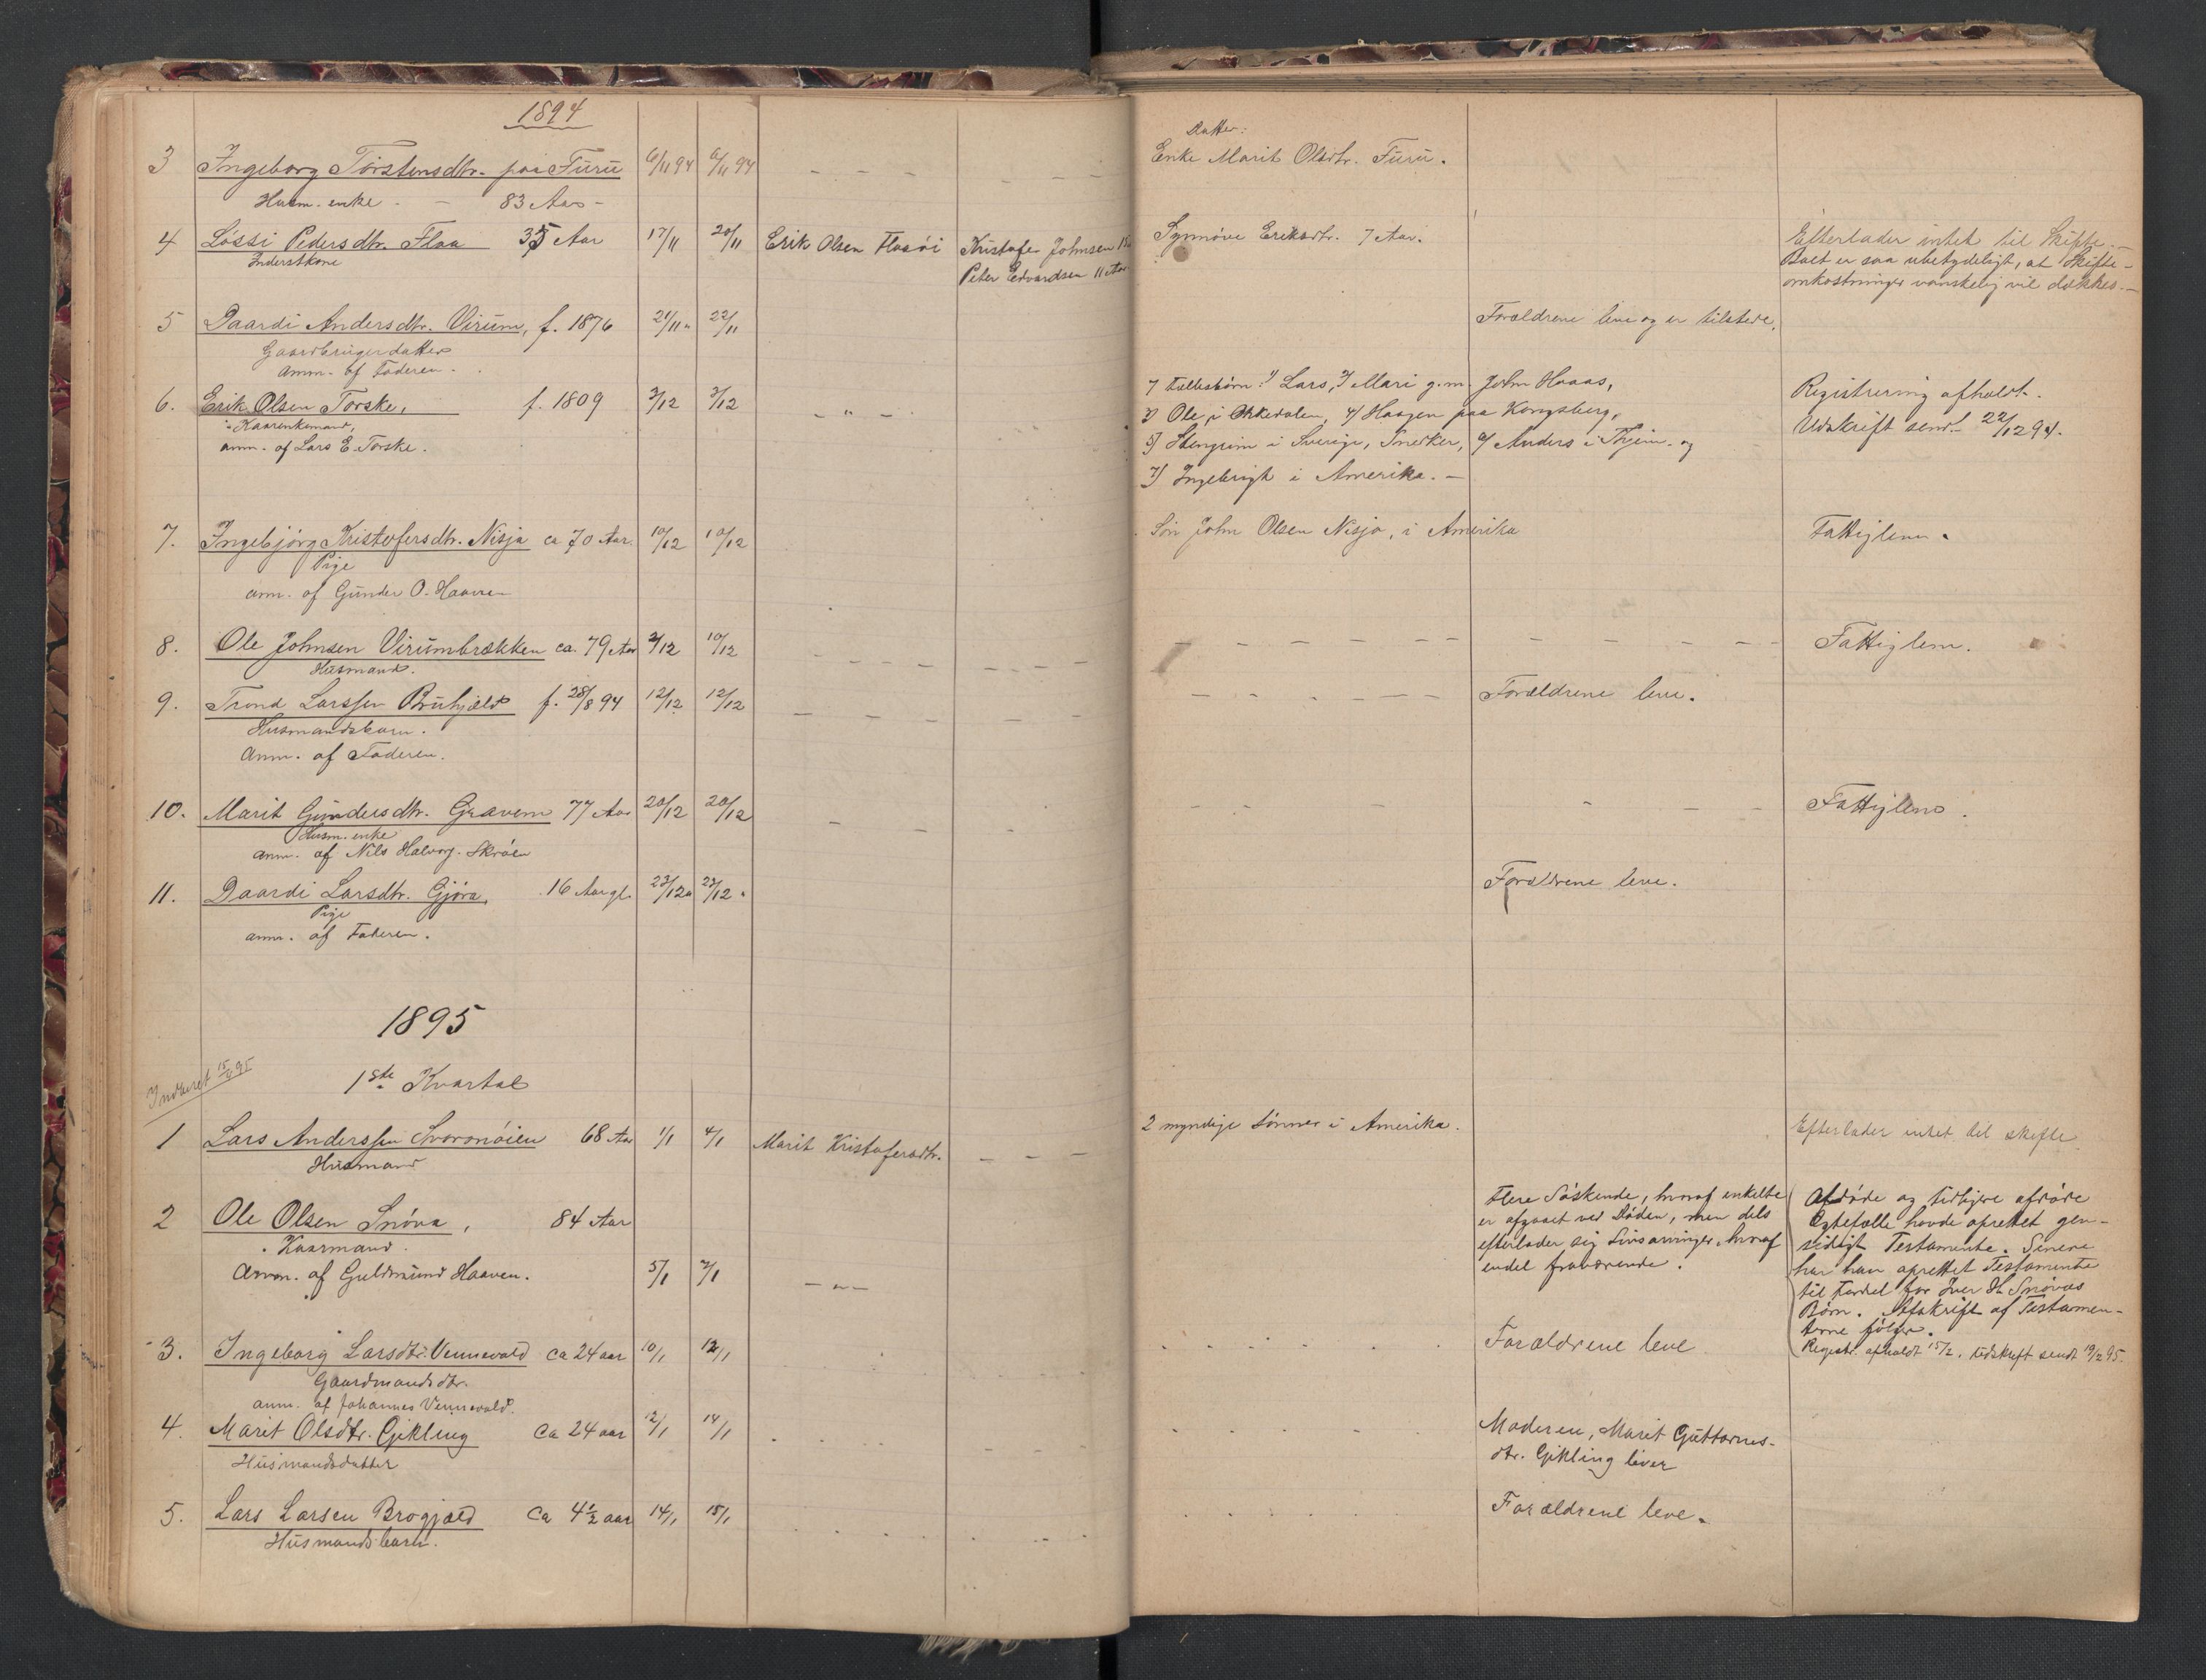 1894
3 Ingeborg Torstensdtr. paa Furu 6/11 94 6/11 94 - - - - - -
Husm. enke - - 83 Aar -
Datter:
Enke Marit Olsdtr. Furu.
4 Løssi Pedersdtr. Flaa 35 Aar 17/11 20/11 Erik Olsen Flaaøi Kristofer Johnsen
Inderstkone
Peter Edvardsen 11 Aar
Synnøve Eriksdtr. 7 Aar.
Efterlader intet til Skifte. -
Boet er saa ubetydeligt, at Skifte-
omkostninger vanskelig vil dækkes. -
5 Baardi Andersdtr. Virum, f. 1876 21/11 22/11
Gaardbrugerdatter
Anm. af Faderen.
Forældrene leve og er tilstede.
6. Erik Olsen Torske, f. 1809 3/12 3/12 - " -
Kaarenkemand,
anm. af Lars E. Torske.
7 Fællesbørn: 1) Lars, 2) Mari g. m. John Haaas,
3) Ole, i Orkedalen, 4) Haagen paa Kongsberg,
5) Stengrim i Sverige, Snedker, 6) Anders i Thjem. og
7) Ingebrigt i Amerika. -
Registrering afholdt.
Udskrift sendt 22/12 94.
7. Ingebjörg Kristofersdtr. Nisja ca 70 Aar. 10/12 10/12
Pige
anm. af Gunder O. Haaven
Søn John Olsen Nisja, i Amerika
Fattiglem.
8. Ole Johnsen Virumbrækken ca. 79 Aar 2/12 10/12
Husmand.
Fattiglem.
9. Trond Larssen Bruhjæld f. 28/8 94 12/12 12/12
Husmandsbarn.
Anm. af Faderen.
Forældrene leve.
10. Marit Gundersdtr. Gravem 77 Aar 20/12 20/12
Husm. enke
anm. af Nils Halvorg. Skrøen
Fattiglem.
11. Baardi Larsdtr. Gjøra, 16 Aar gl. 23/12 23/12
Pige
anm. af Faderen.
Forældrene leve.
1895
Indberet 15/4 95
1ste Kvartal
1 Lars Anderssen Svoronøien 68 Aar 1/1 4/1 Marit Kristofersdtr. - - -
Husmand
2 myndige Sønner i Amerika.
Efterlader intet til skifte
2 Ole Olsen Snöva, 84 Aar
Kaarmand.
Anm. af Guldmund Haaven. 5/1 7/1 - " -
Flere Søskende, hvoraf enkelte
er afgaaet ved Døden, men dels
efterlader sig Livsarvinger, hvoraf
endel fraværende.
Afdöde og tidligere afdöde
Ægtefælle havde oprettet gen-
sidigt Testamente. Senere
har han oprettet Testamente
til Fordel for Iver H. Snövas
Børn. Afskrift af Testamen-
terne følger.
Registr. afholdt 15/2. Udskrift sendt 19/2 95.
3. Ingeborg Larsdtr. Vennevold ca 24 aar 10/1 12/1
Gaardmandsdtr.
anm. af Johannes Vennevold.
Forældrene leve
4. Marit Olsdtr. Gikling Ca 24 aar 12/1 14/1
Husmandsdatter
Moderen, Marit Guttorms-
dtr. Gikling lever
5. Lars Larsen Brogjæld Ca 4½ aar 14/1 15/1
Husmandsbarn.
Forældrene leve.